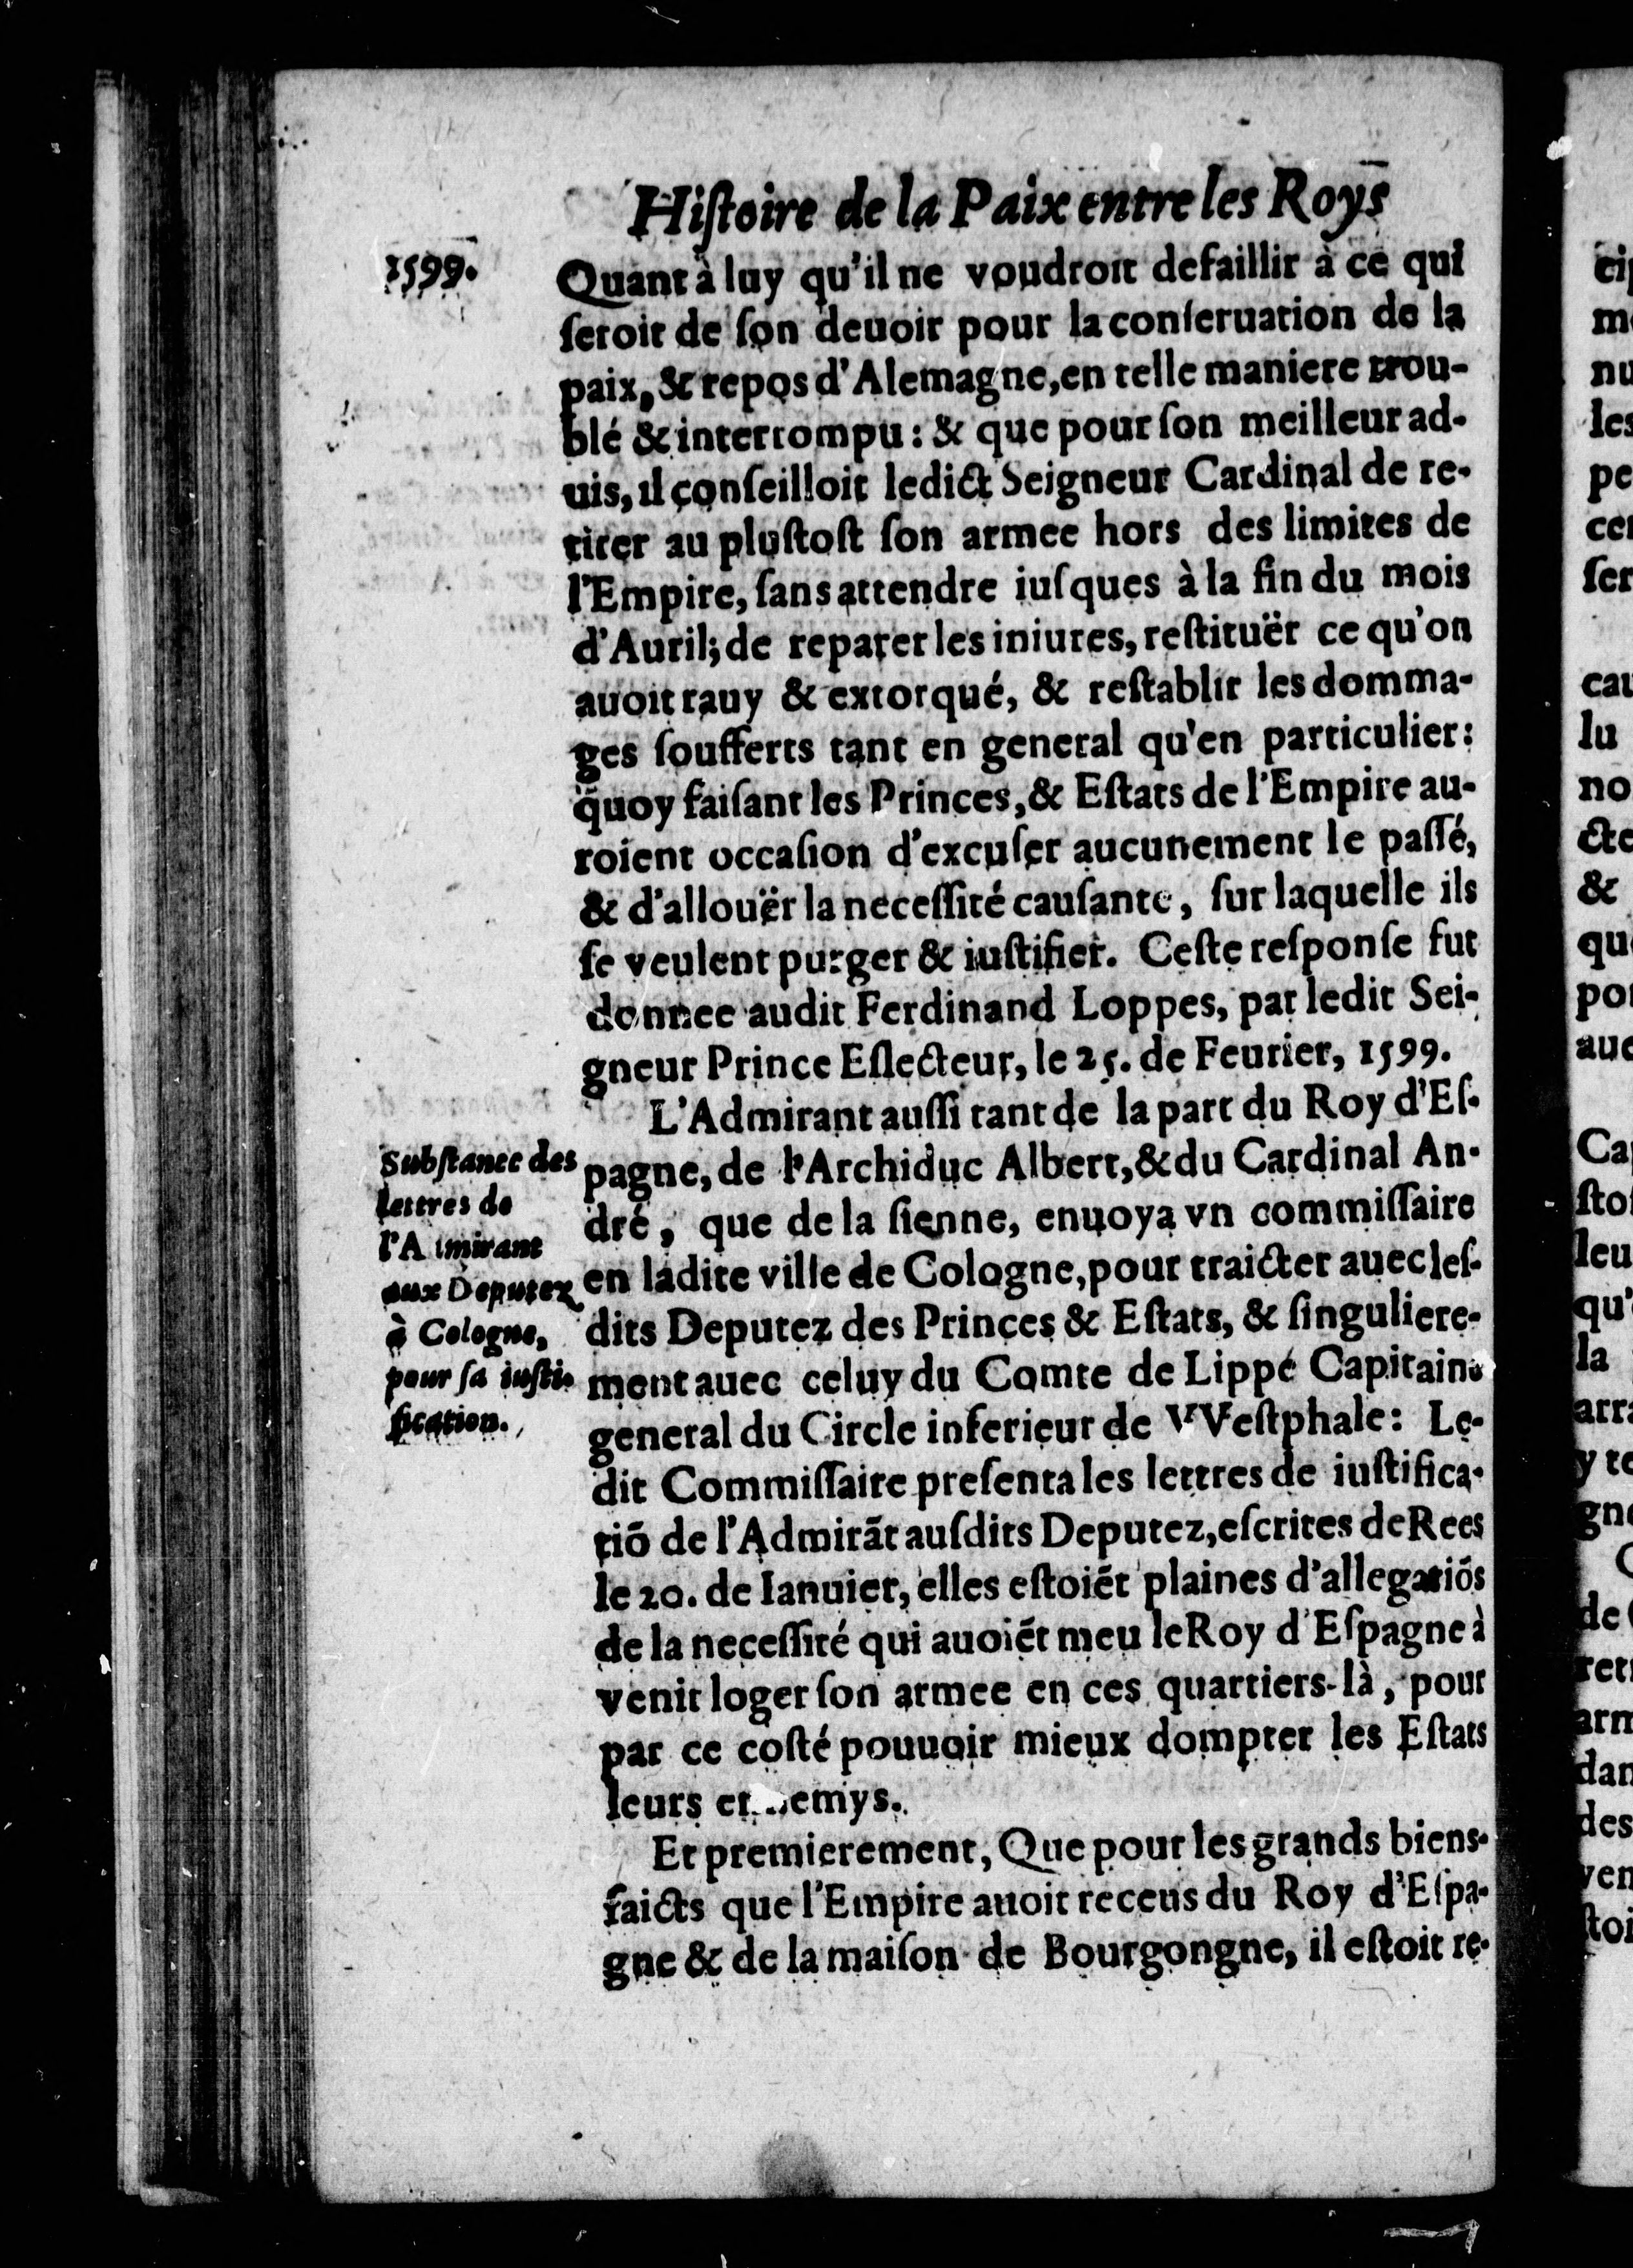 Hiſtoire de la Paix entre les Roys
1599.
Quant à luy qu'il ne voudroit defaillir à ce qui
ſeroit de ſon deuoir pour la conſeruation de la
paix, & repos d'Alemagne, en telle maniere trou-
blé & interrompu : & que pour ſon meilleur ad-
uis, il conſeilloit ledict Seigneur Cardinal de re-
tirer au pluſtoſt ſon armee hors des limites de
l'Empire, ſans attendre iuſques à la fin du mois
d'Auril; de reparer les iniures, reſtituër ce qu'on
auoit rauy & extorqué, & reſtablir les domma-
ges ſoufferts tant en general qu'en particulier:
quoy faiſant les Princes, & Eſtats de l'Empire au-
roient occaſion d'excuſer aucunement le paſſé,
& d'allouër la neceſſité cauſante, ſur laquelle ils
ſe veulent purger & iuſtifier. Ceſte reſponſe fut
donnee audit Ferdinand Loppes, par ledit Sei-
gneur Prince Eſlecteur, le 25. de Feurier, 1599.
L'Admirant auſſi tant de la part du Roy d'Eſ-
pagne, de l'Archiduc Albert, & du Cardinal An-
dré, que de la ſienne, enuoya vn commiſſaire
en ladite ville de Cologne, pour traicter auec leſ-
dits Deputez des Princes & Eſtats, & ſinguliere-
ment auec celuy du Comte de Lippé Capitaine
general du Circle inferieur de VVeſtphale: Le-
dit Commiſſaire preſenta les lettres de iuſtifica-
tiō de l'Admirāt auſdits Deputez, eſcrites de Rees
le 20. de Ianuier, elles eſtoiēt plaines d'allegatiōs
de la neceſſité qui auoiēt meu le Roy d'Eſpagne à
venir loger ſon armee en ces quartiers-là, pour
par ce coſté pouuoir mieux dompter les Eſtats
leurs ennemys.
Et premierement, Que pour les grands biens-
faicts que l'Empire auoit receus du Roy d'Eſpa-
gne & de la maiſon de Bourgongne, il eſtoit re-
Subſtance des
lettres de
l'Admirant
aux Deputez
à Cologne,
pour ſa iuſti-
fication.